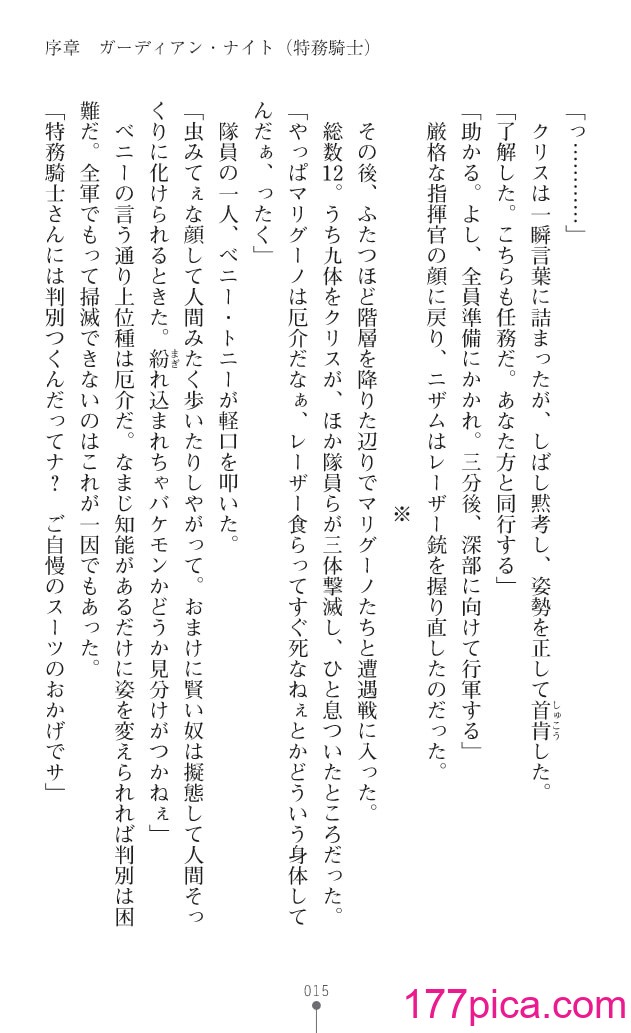 序章　ガーディアン・ナイト（特務騎士）
「っ…………」
　クリスは一瞬言葉に詰まったが、しばし黙考し、姿勢を正して首肯した。
しゅこう
「了解した。こちらも任務だ。あなた方と同行する」
「助かる。よし、全員準備にかかれ。三分後、深部に向けて行軍する」
　厳格な指揮官の顔に戻り、ニザムはレーザー銃を握り直したのだった。
※
　その後、ふたつほど階層を降りた辺りでマリグーノたちと遭遇戦に入った。
　総数12。うち九体をクリスが、ほか隊員らが三体撃滅し、ひと息ついたところだった。
「やっぱマリグーノは厄介だなぁ、レーザー食らってすぐ死なねぇとかどういう身体して
んだぁ、ったく」
　隊員の一人、ベニー・トニーが軽口を叩いた。
「虫みてぇな顔して人間みたく歩いたりしやがって。おまけに賢い奴は擬態して人間そっ
くりに化けられるときた。紛れ込まれちゃバケモンかどうか見分けがつかねぇ」
まぎ
　ベニーの言う通り上位種は厄介だ。なまじ知能があるだけに姿を変えられれば判別は困
難だ。全軍でもって掃滅できないのはこれが一因でもあった。
「特務騎士さんには判別つくんだってナ？　ご自慢のスーツのおかげでサ」
015
177pica.com